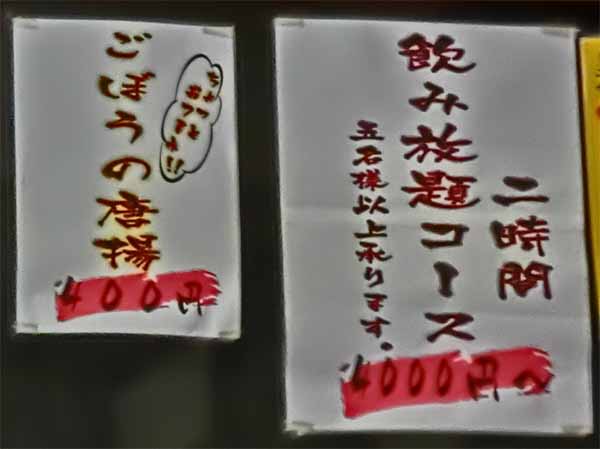 二時間
飲み放題コース
五名様以上承ります。
4000円〜
ごぼうの唐揚
400円